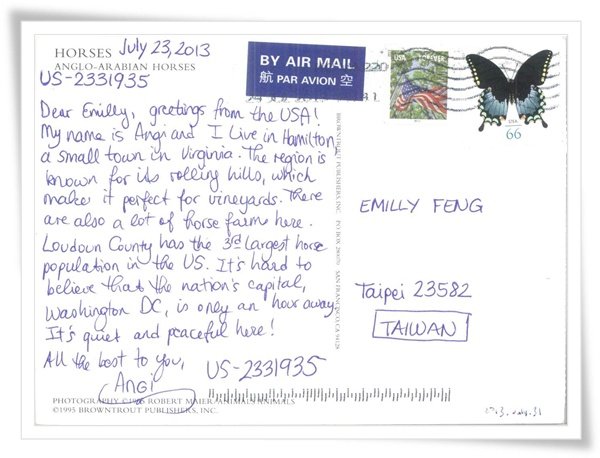 HORSES July 23, 2013
ANGLO-ARABIAN HORSES
US-2331935
BY AIR MAIL
航 PAR AVION 空
USA FOREVER
USA
66
Dear Emilly, greetings from the USA!
My name is Angi and I live in Hamilton,
a small town in Virginia. The region is
known for its rolling hills, which
makes it perfect for vineyards. There
are also a lot of horse farms here.
Loudoun County has the 3rd largest horse
population in the US. It's hard to
believe that the nation's capital,
Washington DC, is only an hour away.
It's quiet and peaceful here!
All the best to you,
Angi
US-2331935
BROWNTROUT PUBLISHERS, INC.
SAN FRANCISCO, CA
EMILLY FENG
Taipei 23582
TAIWAN
PHOTOGRAPHY ©1995 ROBERT MAIER/ANIMALS ANIMALS
©1995 BROWNTROUT PUBLISHERS, INC.